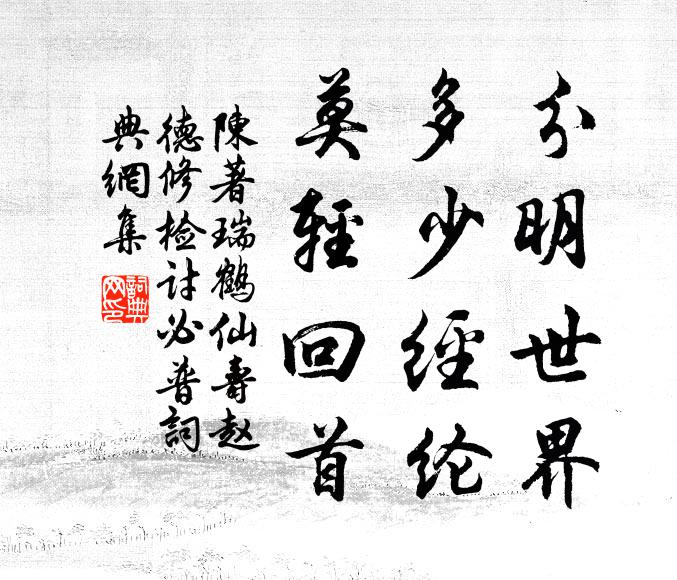 分明世界
多少經纶
莫輕回首
陳著瑞鶴仙壽赵
德修检討必普詞
典網集
詞典
网印